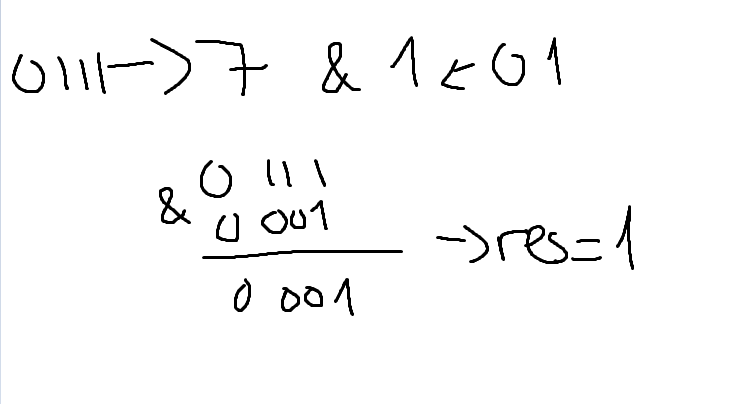 0111->7 & 1<-01
0 111
& 0 001
0 001 ->res=1